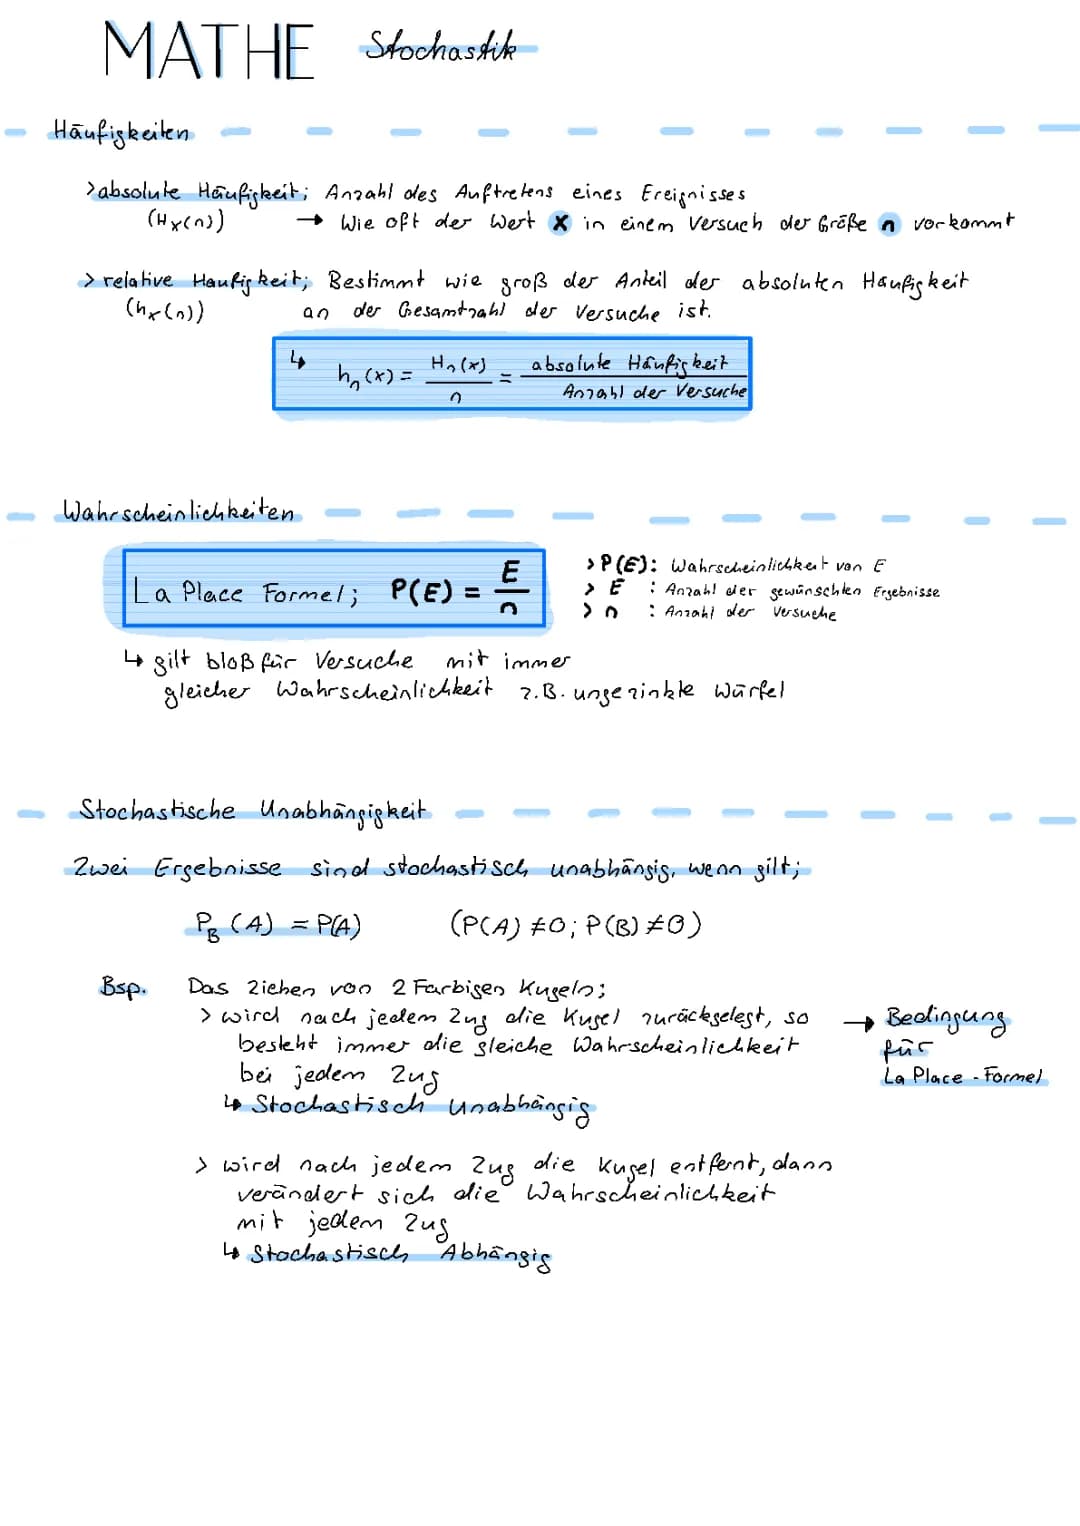 MATHE Stochastik
Häufigkeiten
> absolute Häufigkeit; Anzahl des Auftretens eines Ereignisses
(Hx(n)) → Wie oft der Wert x in einem Versuch der Größe n vorkommt
> relative Haufigkeit; Bestimmt wie groß der Anteil der absoluten Häufigkeit
(hx(n)) an der Gesamtzahl der Versuche ist.
↳ hn(x) = Hn(x) / n = absolute Häufigkeit / Anzahl der Versuche
Wahrscheinlichkeiten
La Place Formel; P(E) = E / n
> P(E): Wahrscheinlichkeit von E
> E : Anzahl der gewünschten Ergebnisse
> n : Anzahl der Versuche
↳ gilt bloß für Versuche mit immer
gleicher Wahrscheinlichkeit z.B. ungezinkte Würfel
Stochastische Unabhängigkeit
Zwei Ergebnisse sind stochastisch unabhängig, wenn gilt;
P_B (A) = P(A) (P(A) ≠0; P(B) ≠0)
Bsp. Das Ziehen von 2 Farbigen Kugeln;
> wird nach jedem Zug die Kugel zurückgelegt, so
besteht immer die gleiche Wahrscheinlichkeit
bei jedem Zug
↳ Stochastisch Unabhängig
→ Bedingung
für
La Place - Formel
> wird nach jedem Zug die Kugel entfernt, dann
verändert sich die Wahrscheinlichkeit
mit jedem Zug
↳ Stochastisch Abhängig